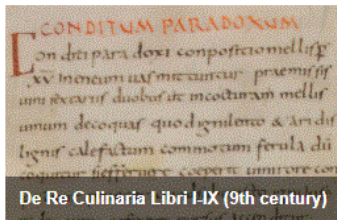 CONDITUM PARADOXUM
Conditi paradoxi conpositio mellis p
XV in eneum uas mittuntur praemissis
uini sextariis duobus ut in cocturam mellis
uinum decoquas quod igni lento & aridis
lignis calefactum commotum ferula dū
coquitur si efferuere coeperit uini rore con
De Re Culinaria Libri I-IX (9th century)